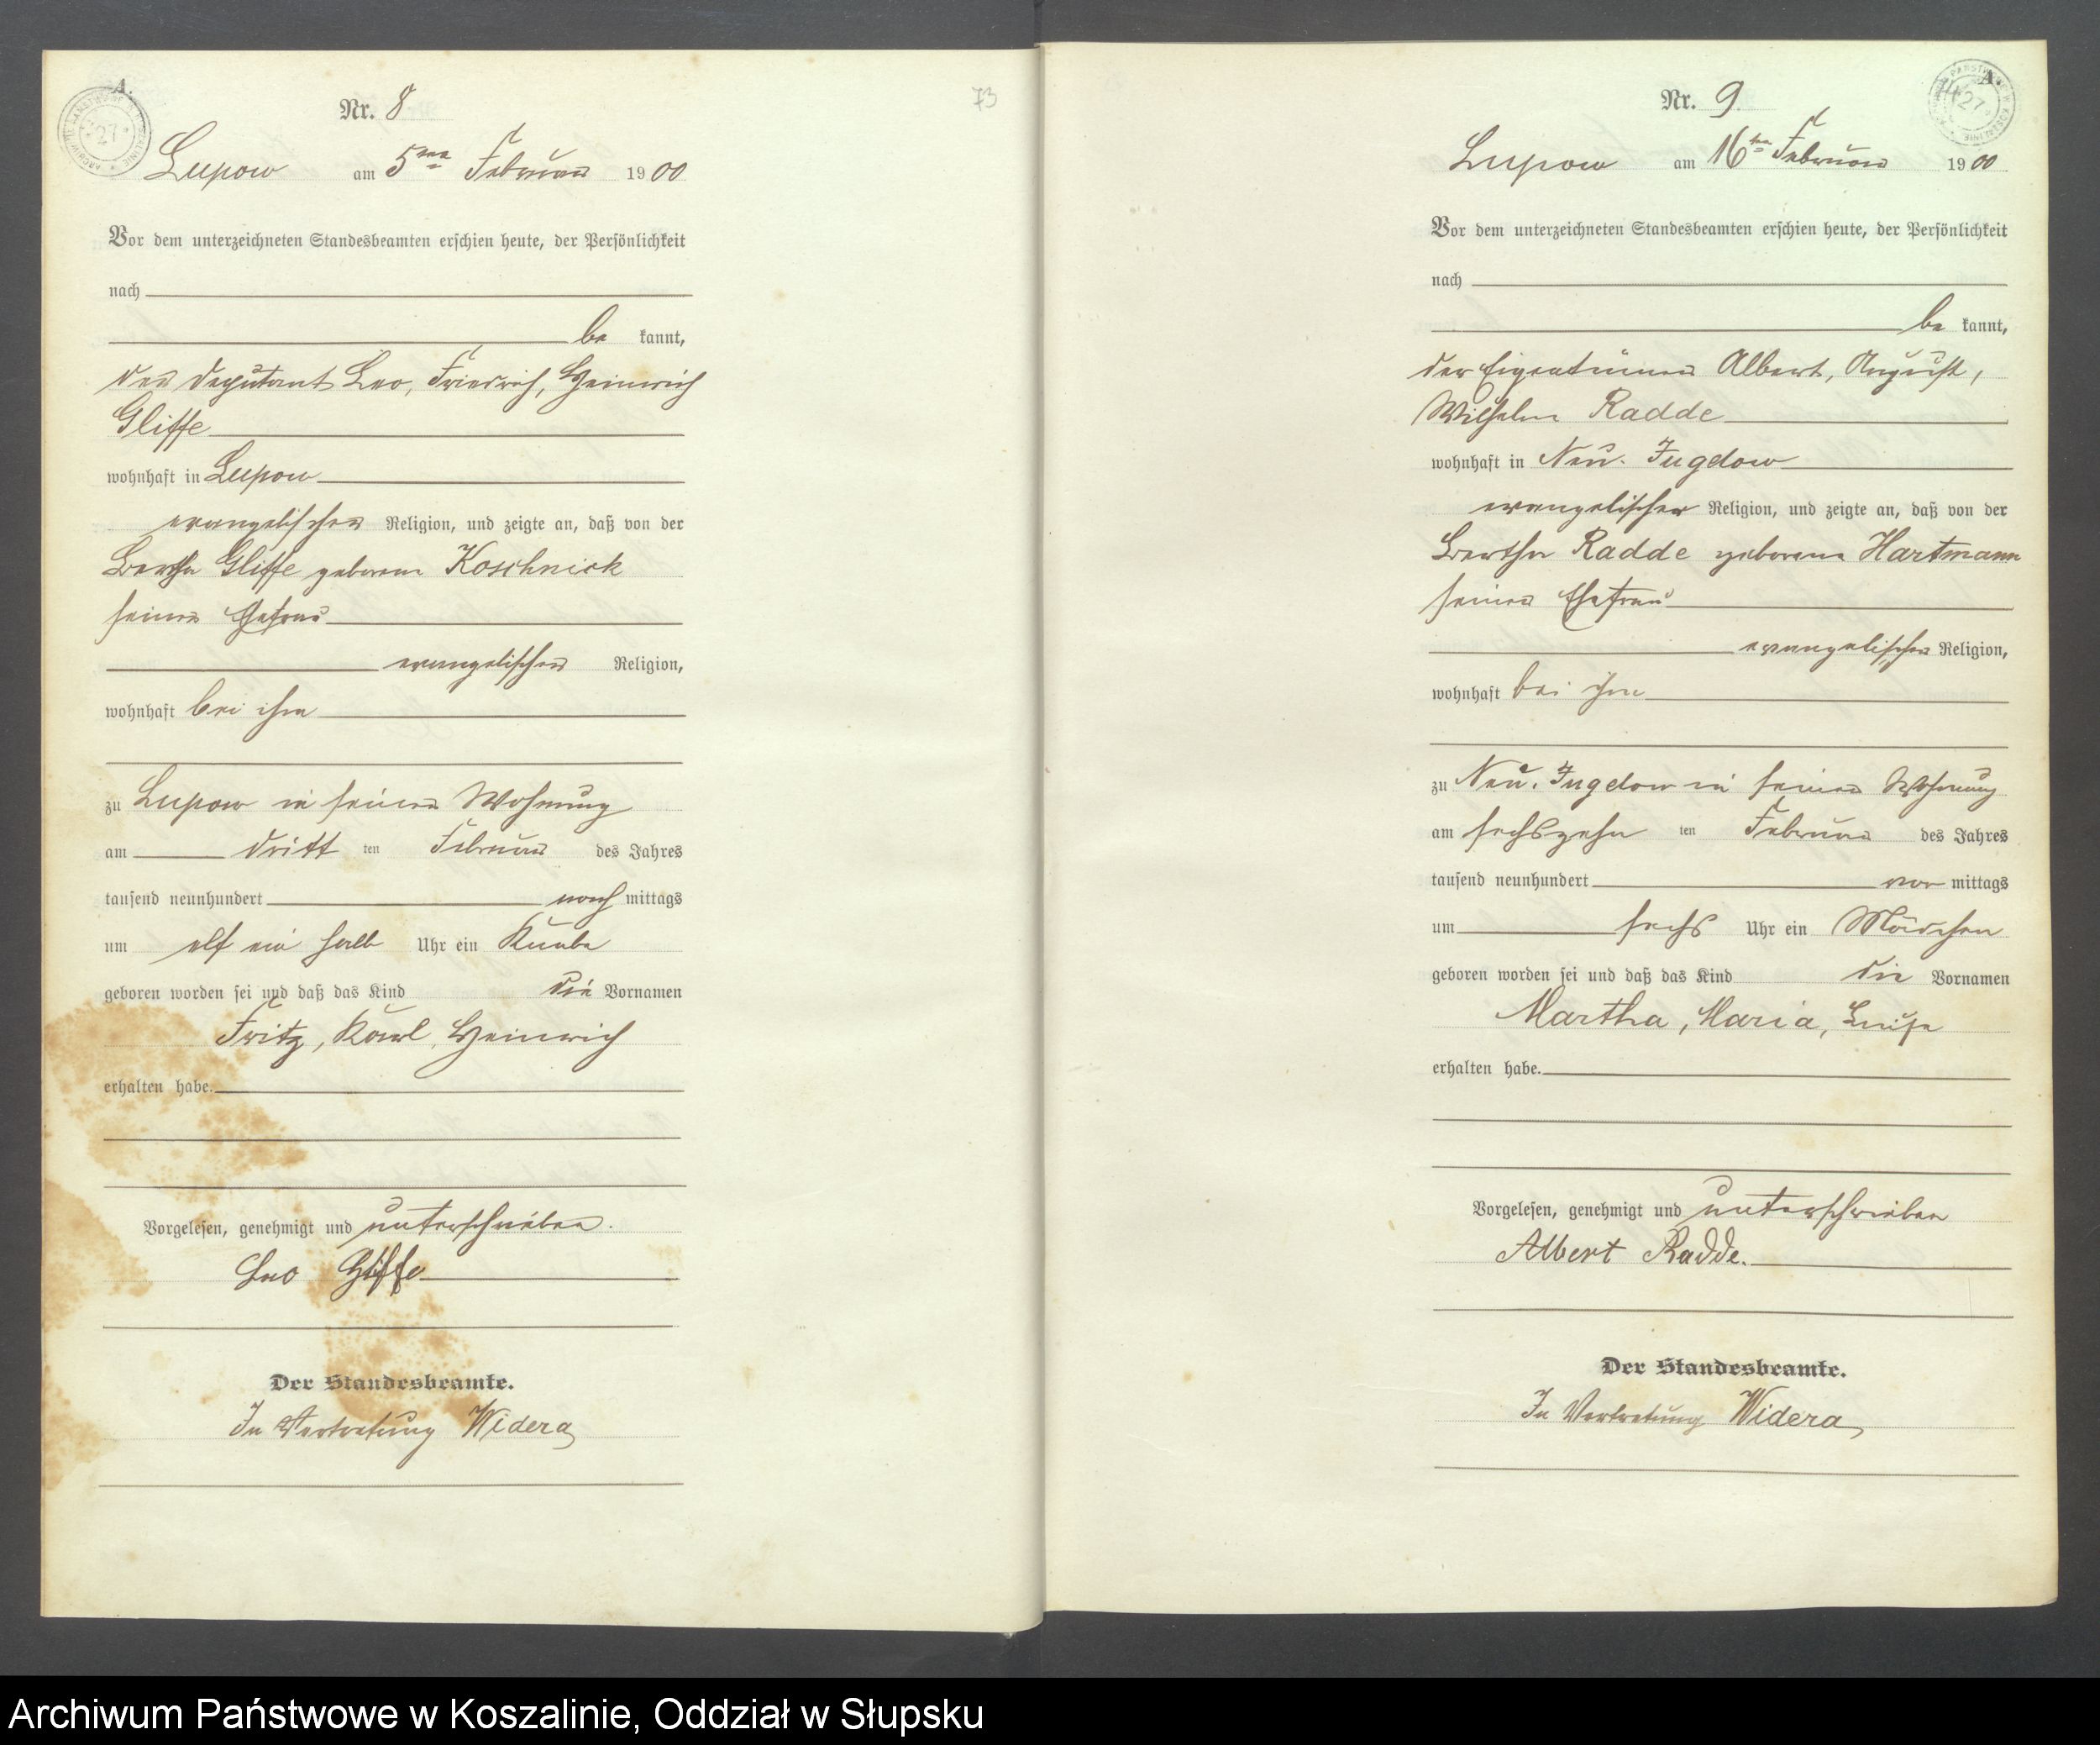 A.
Nr. 8
Lupow am 5ten Februar 1900
Vor dem unterzeichneten Standesbeamten erschien heute, der Persönlichkeit
nach
be kannt,
der Deputant Leo, Friedrich, Heinrich
Gliffe
wohnhaft in Lupow
evangelischer Religion, und zeigte an, daß von der
Bertha Gliffe geborene Koschnick
seiner Ehefrau
evangelischer Religion,
wohnhaft bei ihm
zu Lupow in seiner Wohnung
am dritt ten Februar des Jahres
tausend neunhundert nach mittags
um elf ein halb Uhr ein Knabe
geboren worden sei und daß das Kind die Vornamen
Fritz, Karl, Heinrich
erhalten habe.
Vorgelesen, genehmigt und unterschrieben.
Leo Gliffe
Der Standesbeamte.
In Vertretung Widera
73
A.
Nr. 9.
Lupow am 16ten Februar 1900
Vor dem unterzeichneten Standesbeamten erschien heute, der Persönlichkeit
nach
be kannt,
der Eigentümer Albert, August,
Wilhelm Radde
wohnhaft in Neu. Jugelow
evangelischer Religion, und zeigte an, daß von der
Bertha Radde geborene Hartmann
seiner Ehefrau
evangelischer Religion,
wohnhaft bei ihm
zu Neu. Jugelow in seiner Wohnung
am sechszehn ten Februar des Jahres
tausend neunhundert vor mittags
um sechs Uhr ein Mädchen
geboren worden sei und daß das Kind die Vornamen
Martha, Maria, Luise
erhalten habe.
Vorgelesen, genehmigt und unterschrieben
Albert Radde.
Der Standesbeamte.
In Vertretung Widera
Archiwum Państwowe w Koszalinie, Oddział w Słupsku